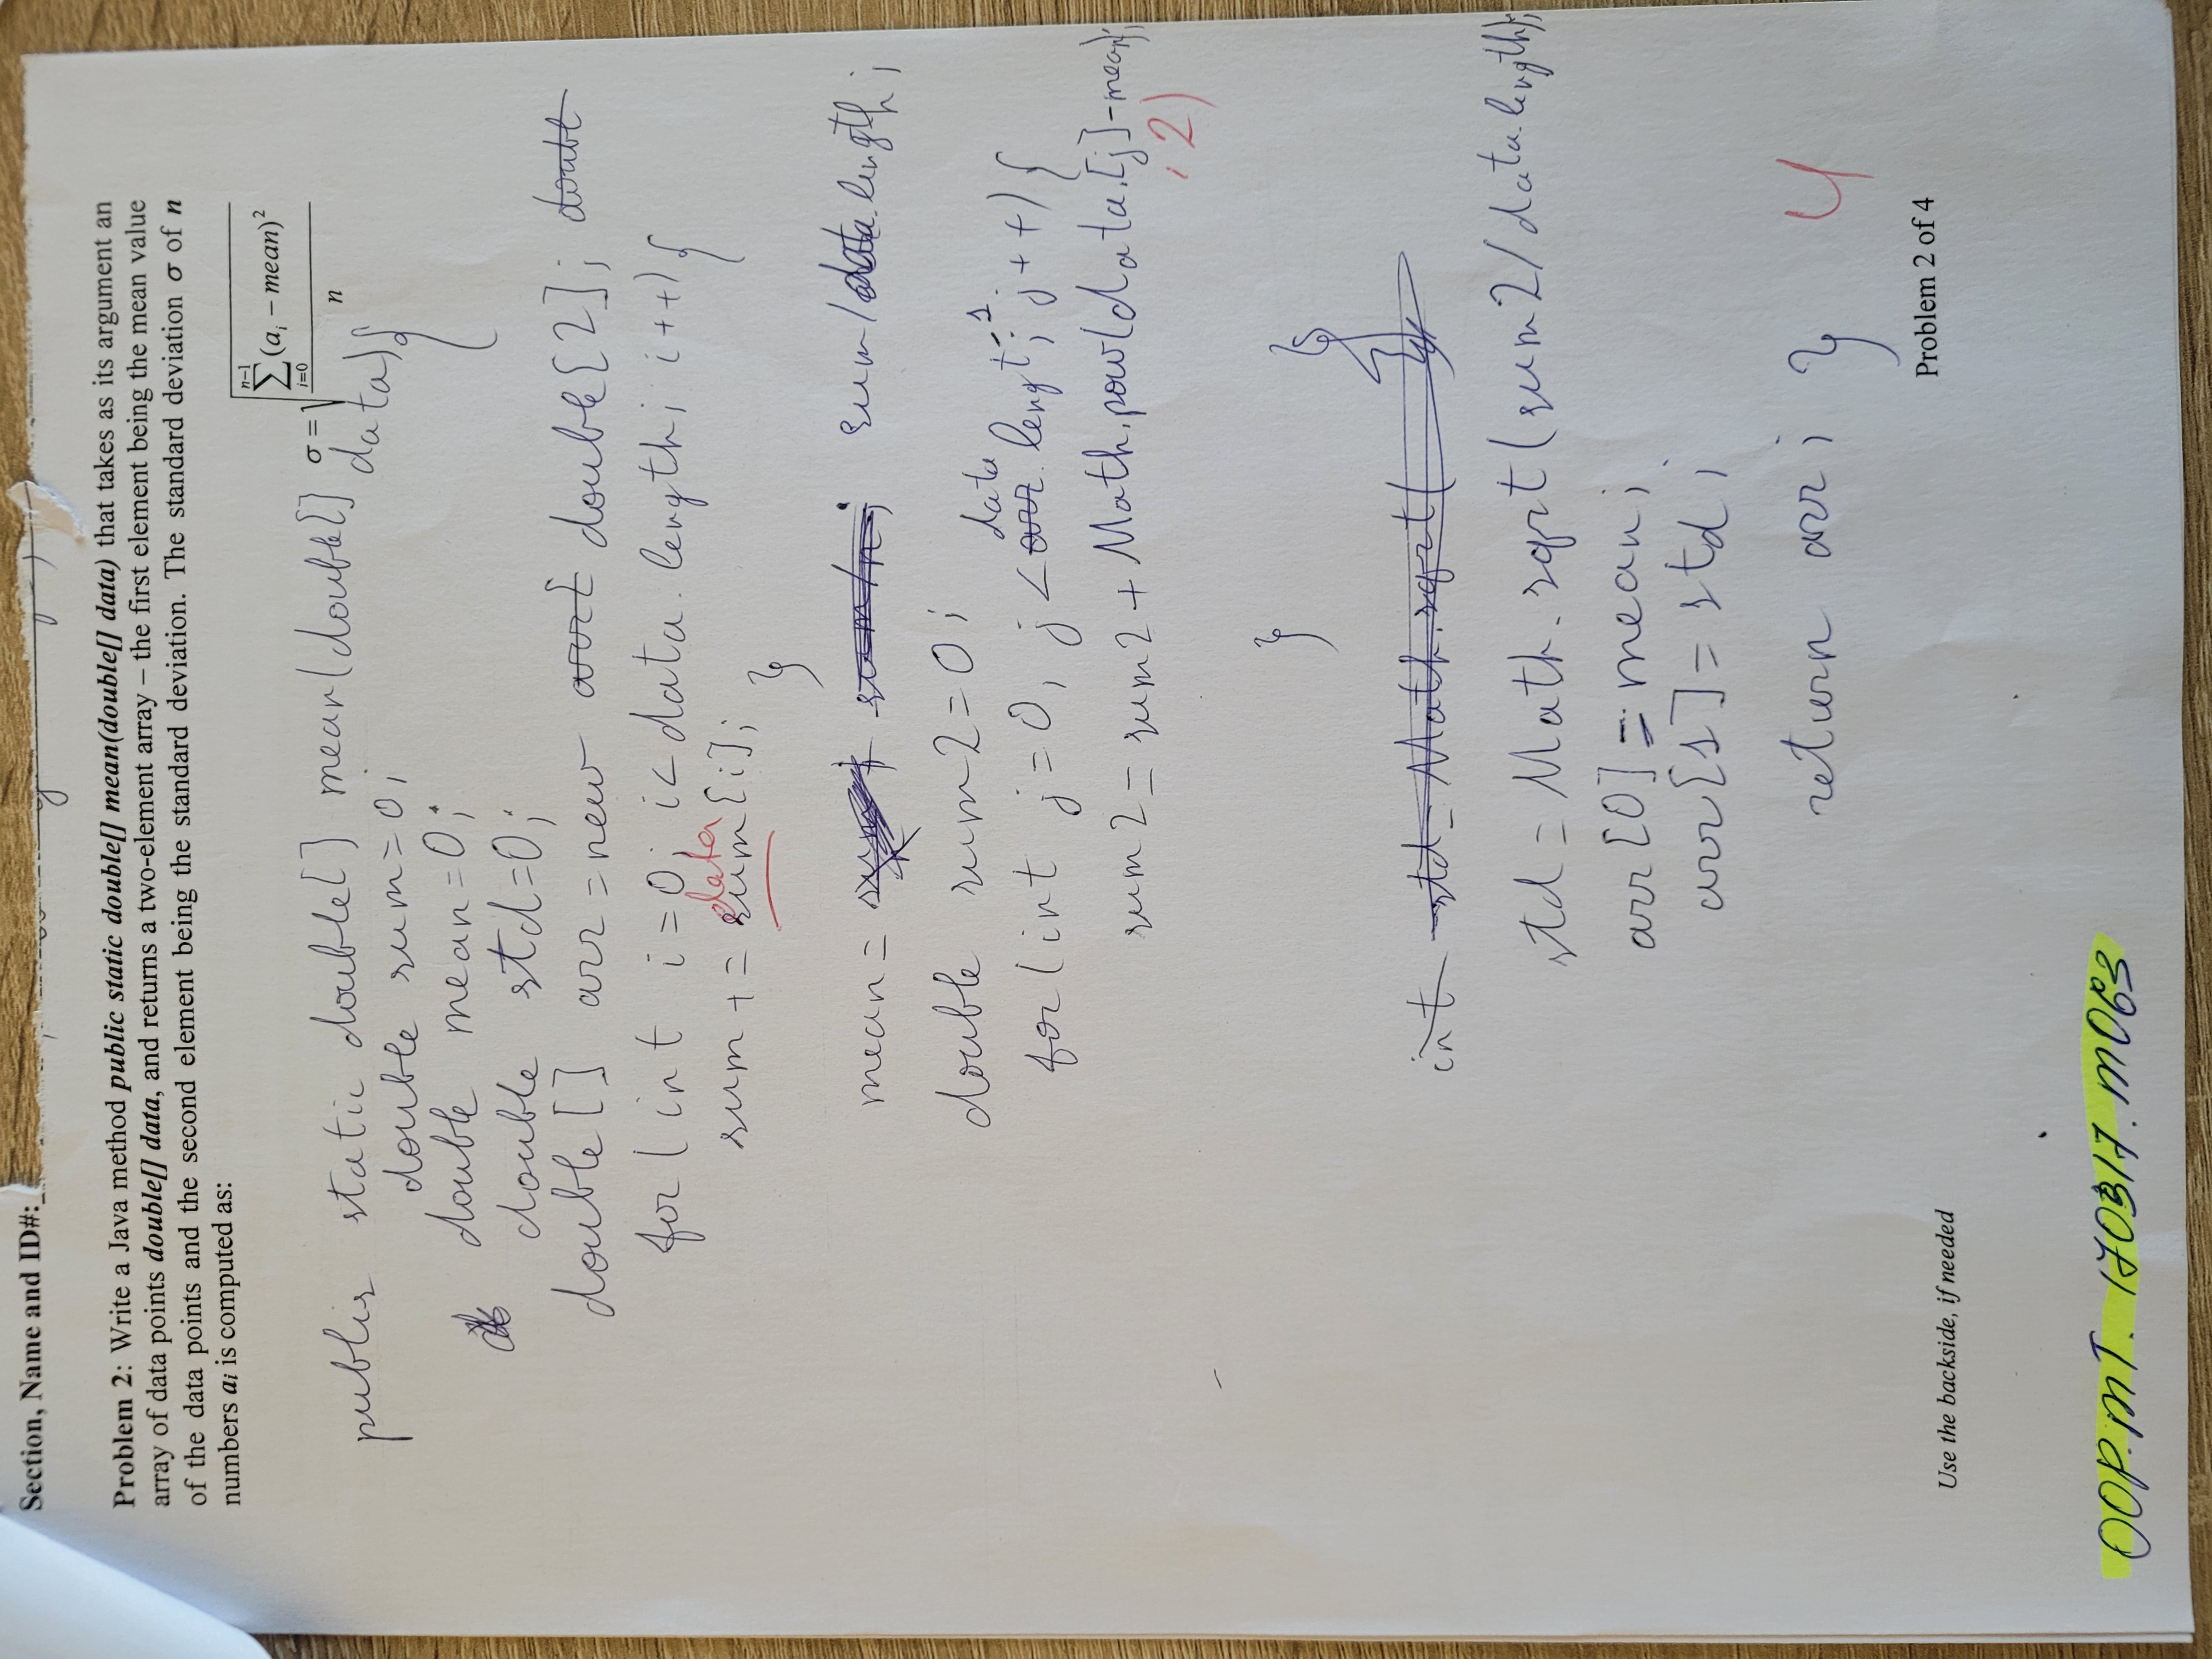 Section, Name and ID#:
Problem 2: Write a Java method public static double[] mean(double[] data) that takes as its argument an
array of data points double[] data, and returns a two-element array – the first element being the mean value
of the data points and the second element being the standard deviation. The standard deviation σ of n
numbers ai is computed as:
σ = √(∑_{i=0}^{n−1} (a_i − mean)² / n)
public static double[] mean(double[] data){
double sum=0;
double mean=0;
double std=0;
double[] arr=new double[2];
for(int i=0; i<data.length; i++){
data
sum += sum[i];
}
mean = sum/data.length;
double sum2=0;
data
for(int j=0, j<arr.lengt-1; j++){
sum2=sum2+Math.pow(data.[j]-mean);
,2)
}
int std= Math.sqrt(
std=Math.sqrt(sum2/data.length);
arr[0]=mean;
arr[1]=std;
return arr; }
4
Problem 2 of 4
Use the backside, if needed
OOP.MT.170317.M063